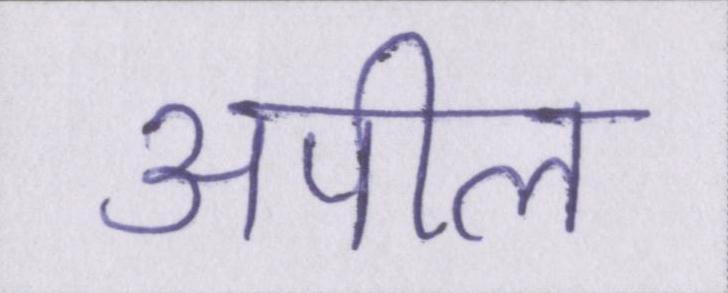 अपील